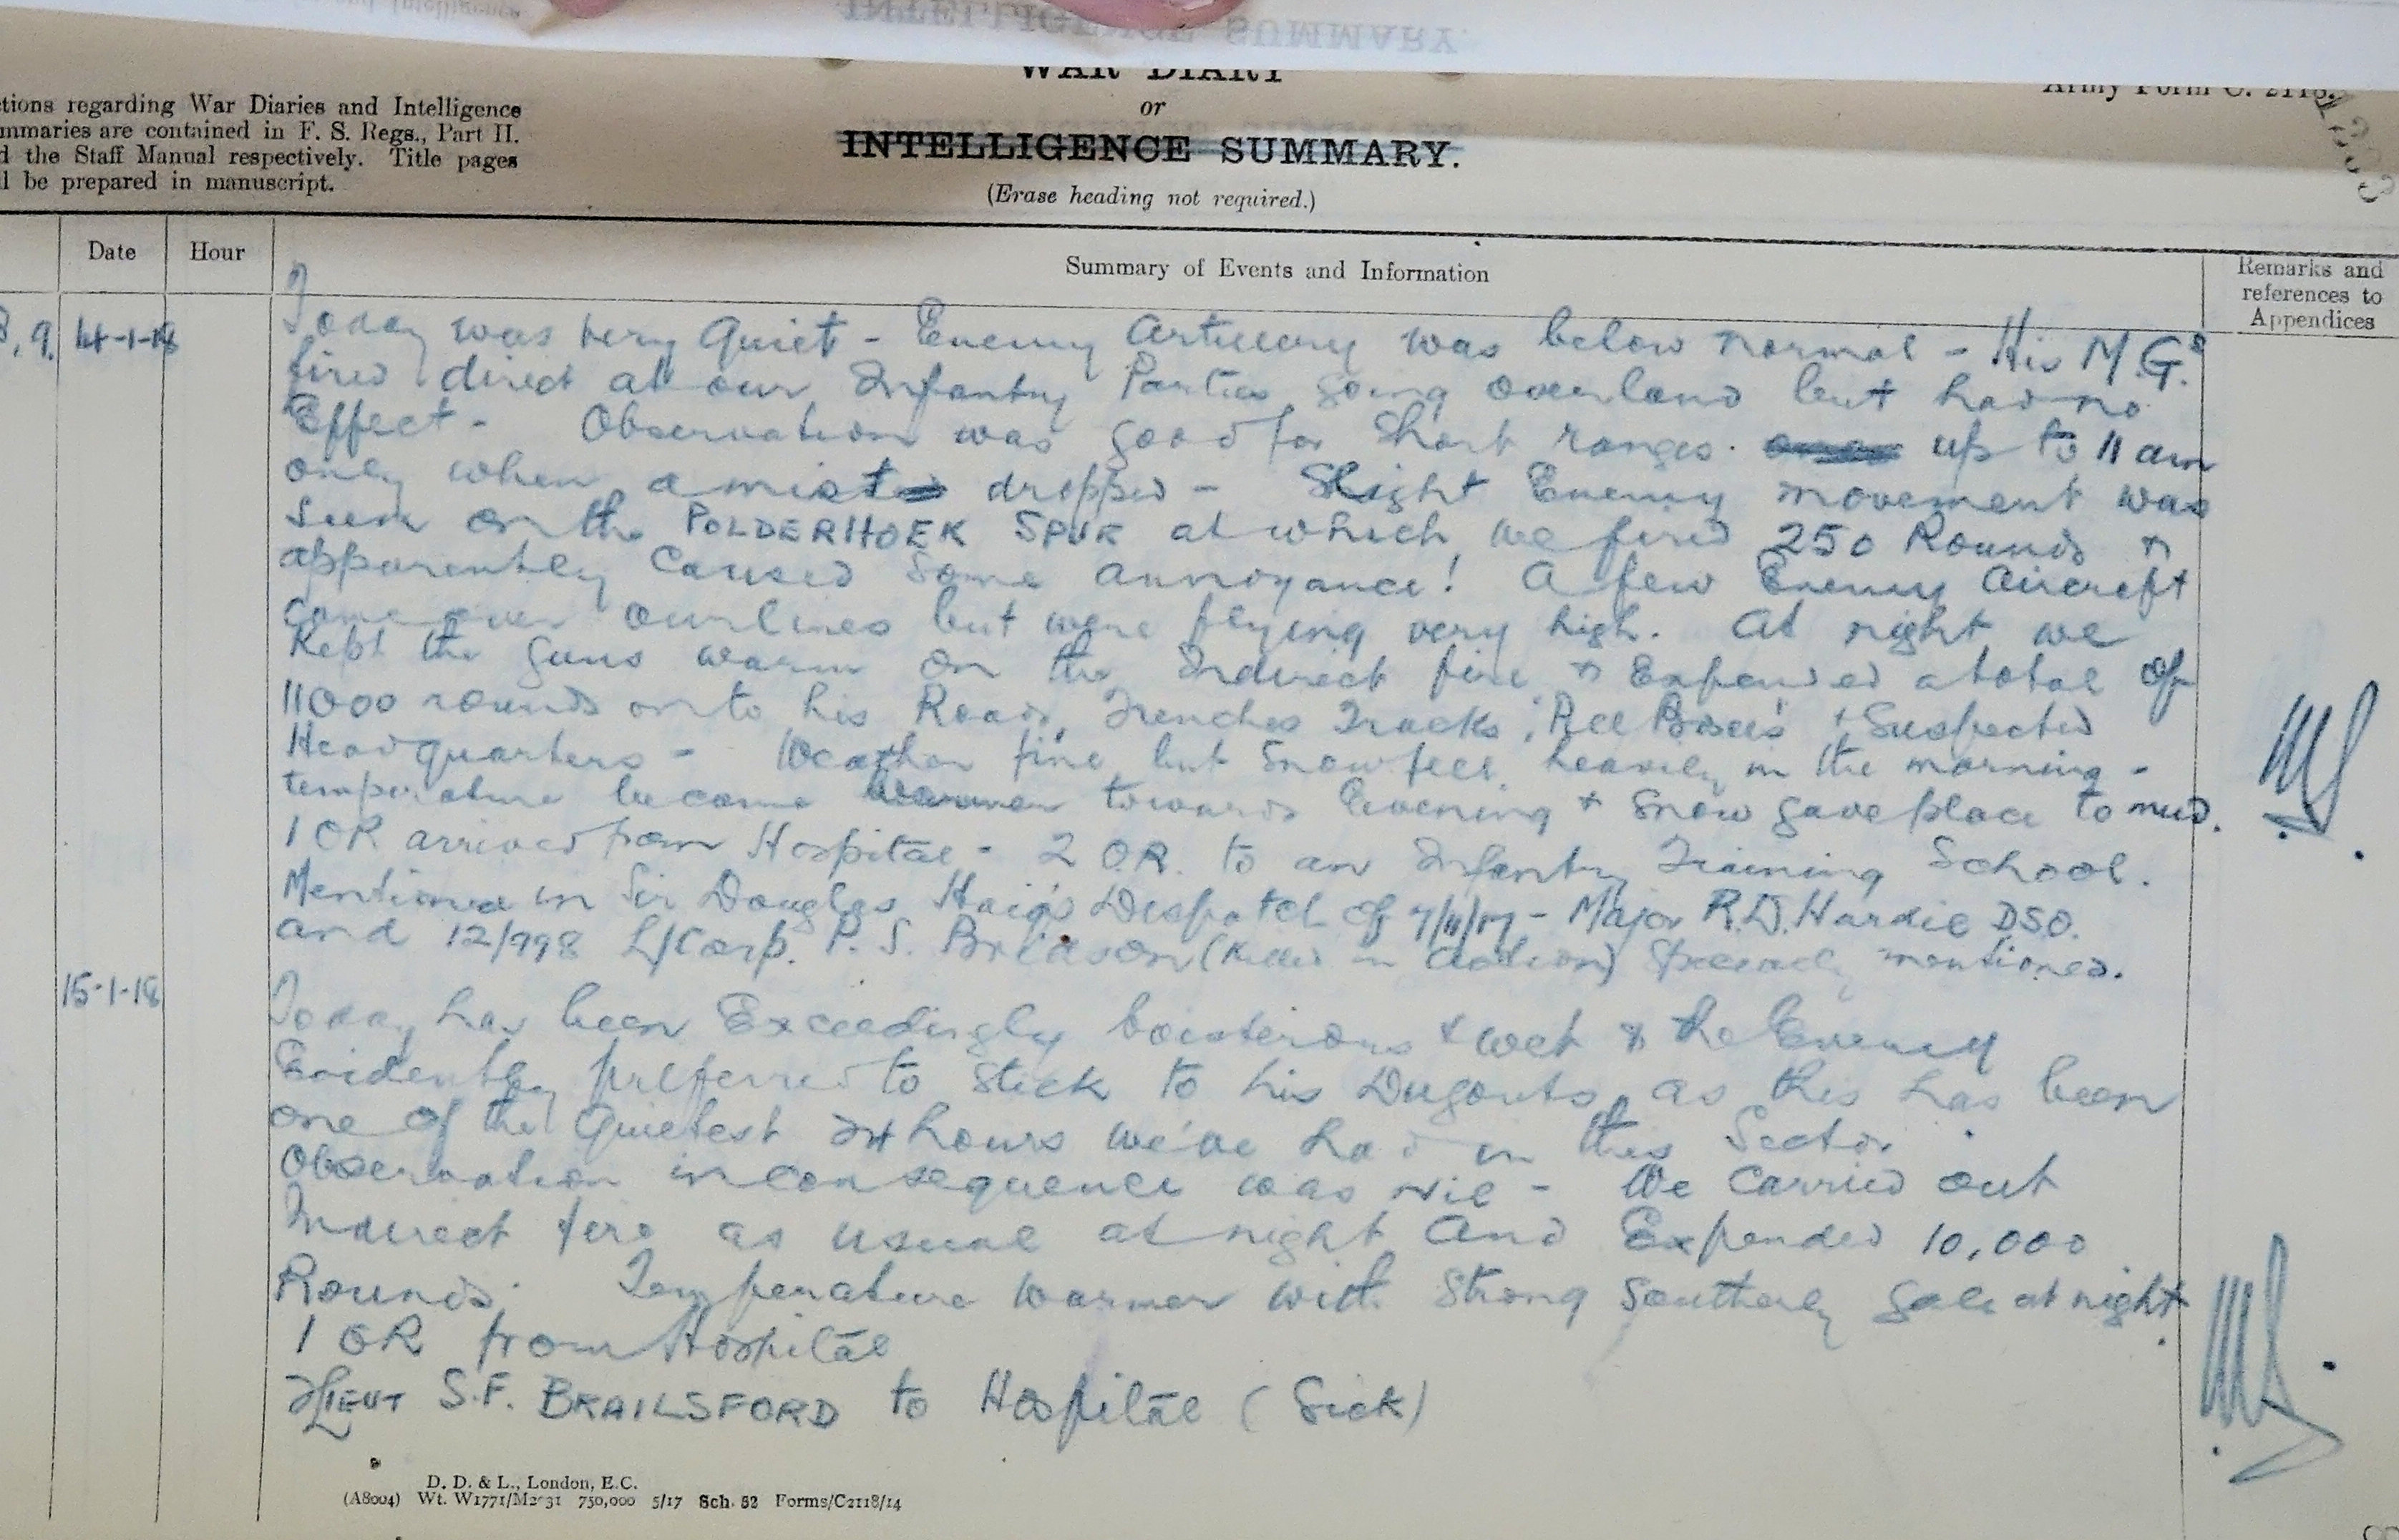 WAR DIARY
Army Form C. 2118.
or
INTELLIGENCE SUMMARY.
(Erase heading not required.)
tions regarding War Diaries and Intelligence
mmaries are contained in F. S. Regs., Part II.
d the Staff Manual respectively. Title pages
l be prepared in manuscript.
Date
Hour
Summary of Events and Information
Remarks and
references to
Appendices
9. 14-1-18
Today was very Quiet - Enemy Artillery was below normal - His M.Gs
fired direct at our Infantry Parties going overland but had no
Effect - Observation was good for short ranges. up to 11 am
only when a mist dropped - Slight Enemy movement was
seen on the POLDERHOEK SPUR at which we fired 250 Rounds &
apparently caused some annoyance! A few Enemy Aircraft
came over our lines but were flying very high. At night we
Kept the guns warm on the Indirect fire & Expended a total of
11000 rounds onto his Roads, Trenches Tracks, Pill Boxes & Suspected
Headquarters - Weather fine but Snow fell heavily in the morning -
temperature became warmer towards Evening & snow gave place to mud.
1 OR arrived from Hospital - 2 O.R. to an Infantry Training School.
Mentioned in Sir Douglas Haig's Despatch of 7/11/17 - Major R.D. Hardie DSO.
and 12/998 L/Corp. P. S. (Killed in Action) Specially mentioned.
15-1-18
Today has been Exceedingly boisterous & wet & the Enemy
Evidently preferred to stick to his Dugouts as this has been
one of the Quietest 24 hours we've had in this Sector.
Observation in consequence was Nil - We carried out
Indirect fire as usual at night and Expended 10,000
Rounds. Temperature warmer with strong Southerly gale at night
1 OR from Hospital
2/LIEUT S.F. BRAILSFORD to Hospital (Sick)
D. D. & L., London, E.C.
(A8004) Wt. W1771/M2031 750,000 5/17 Sch. 52 Forms/C2118/14